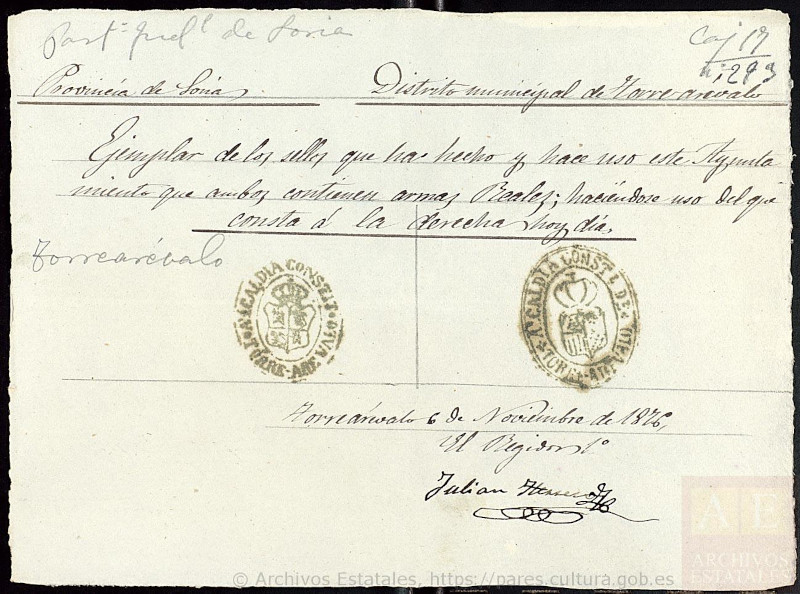 Part.ᵃ Jud.ˡ de Soria
Caj 17
n.º 293
Provincia de Soria
Distrito municipal de Torrearévalo
Ejemplar de los sellos que ha hecho y hace uso este Ayunta
miento que ambos contienen armas Reales; haciéndose uso del que
consta á la derecha hoy día.
Torrearévalo
ALCALDIA CONSTIT
TORRE-AREVALO
ALCALDIA CONST.L DE
TORRE-AREVALO
Torrearévalo 6 de Noviembre de 1876,
El Regidor 1º
Julian
AE
ARCHIVOS
ESTATALES
© Archivos Estatales, https://pares.cultura.gob.es